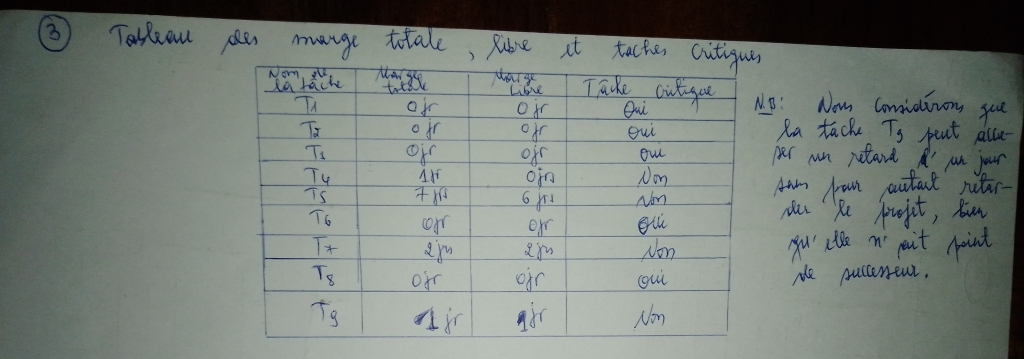 ③ Tableau des marge totale, libre et taches critiques
Nom de la tâche | Marge totale | Marge libre | Tâche critique
T1 | 0jr | 0jr | Oui
T2 | 0jr | 0jr | oui
T3 | 0jr | 0jr | oui
T4 | 1jr | 0jrs | Non
T5 | 7jrs | 6jrs | Non
T6 | 0jr | 0jr | Oui
T7 | 2jrs | 2jrs | Non
T8 | 0jr | 0jr | oui
T9 | 1jr | 1jr | Non
N.B: Nous considérons que
la tâche T9 peut accu-
ser un retard d'un jour
sans pour autant retar-
der le projet, bien
qu'elle n'ait point
de successeur.